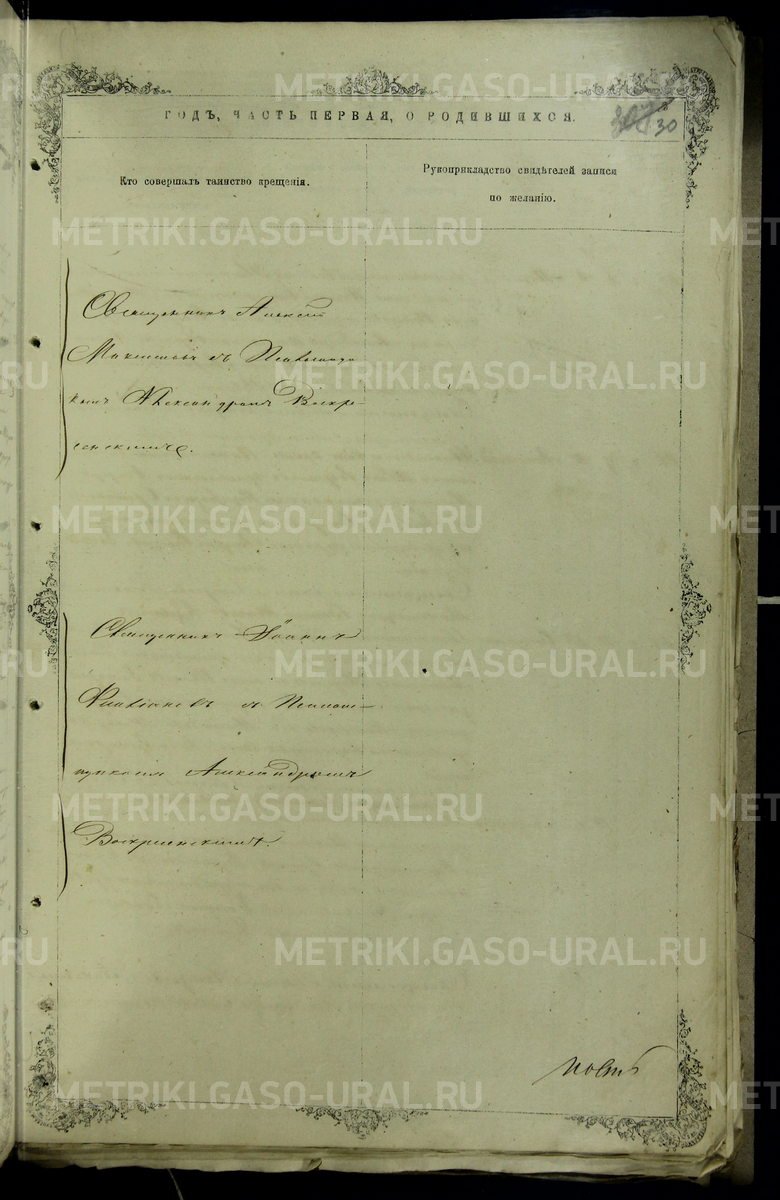 METRIKI.GASO-URAL.RU
ГОДЪ, ЧАСТЬ ПЕРВАЯ, О РОДИВШИХСЯ.
30
Кто совершалъ таинство крещенія.
Рукоприкладство свидѣтелей записи
по желанію.
METRIKI.GASO-URAL.RU
Священникъ Алексѣй
съ Псаломщи
комъ Александромъ Воскре-
сенскимъ.
METRIKI.GASO-URAL.RU
METRIKI.GASO-URAL.RU
METRIKI.GASO-URAL.RU
Священникъ Іоаннъ
METRIKI.GASO-URAL.RU
Флавіановъ съ Псалом-
щикомъ Александромъ
METRIKI.GASO-URAL.RU
Воскресенскимъ.
METRIKI.GASO-URAL.RU
METRIKI.GASO-URAL.RU